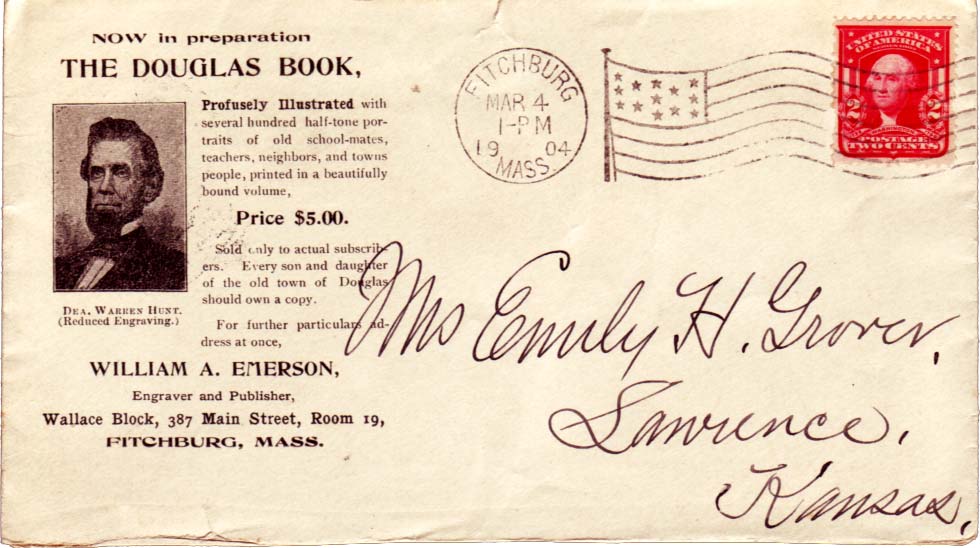 NOW in preparation
THE DOUGLAS BOOK,
Profusely Illustrated with
several hundred half-tone por-
traits of old school-mates,
teachers, neighbors, and towns
people, printed in a beautifully
bound volume,
Price $5.00.
Sold only to actual subscrib-
ers. Every son and daughter
of the old town of Douglas
should own a copy.
For further particulars ad-
dress at once,
DEA. WARREN HUNT.
(Reduced Engraving.)
WILLIAM A. EMERSON,
Engraver and Publisher,
Wallace Block, 387 Main Street, Room 19,
FITCHBURG, MASS.
FITCHBURG
MAR 4
1-PM
19 04
MASS.
UNITED STATES
OF AMERICA
2 2
WASHINGTON
POSTAGE
TWO CENTS
Mrs Emily H. Grover,
Lawrence,
Kansas,